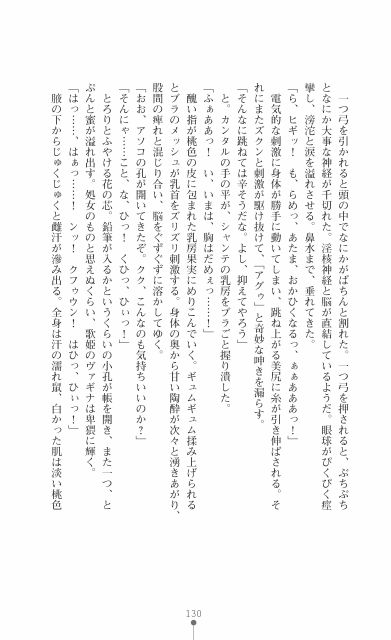 一つ弓を引かれると頭の中でなにかがぱちんと割れた。一つ弓を押されると、ぷちぷち
となにか大事な神経が千切れた。淫核神経と脳が直結しているようだ。眼球がぴくぴく痙
攣し、滂沱と涙を溢れさせる、鼻水まで、垂れてきた。
「ら、ヒギッ！　も、らめっ、あたま、おかひくなるっ、ぁぁあああっ！」
電気的な刺激に身体が勝手に動いてしまい、跳ね上がる美尻に糸が引き伸ばされる。そ
れにまたズクンと刺激が駆け抜けて、「アグゥ」と奇妙な呻きを漏らす。
「そんなに跳ねては辛そうだな。よし、抑えてやろう」
と。カンタルの手の平が、シャンテの乳房をブラごと握り潰した。
「ふぁああっ！　い、いまは、胸はだめぇっ……！」
醜い指が桃色の皮に包まれた乳房果実にめりこんでいく。ギュムギュム揉み上げられる
とブラのメッシュが乳首をズリズリ刺激する。身体の奥から甘い陶酔が次々と湧きあがり、
股間の痺れと混じり合い、脳をぐずぐずに溶かしてゆく。
「おお、アソコの孔が開いてきたぞ。クク、こんなのも気持ちいいのか？」
「そんにゃ……こと、な、ひっ！　くひっ、ひぃっ！」
とろりとふやける花の芯。鉛筆が入るかというくらいの小孔が帳を開き、また一つ、と
ぷんと蜜が溢れ出す。処女のものと思えぬくらい、歌姫のヴァギナは卑猥に輝く。
「はっ……、はぁっ……！　ンッ！　クフゥウン！　はひっ、ひぃっ！」
腋の下からじゅくじゅくと雌汗が滲み出る。全身は汗の濡れ鼠、白かった肌は淡い桃色
130